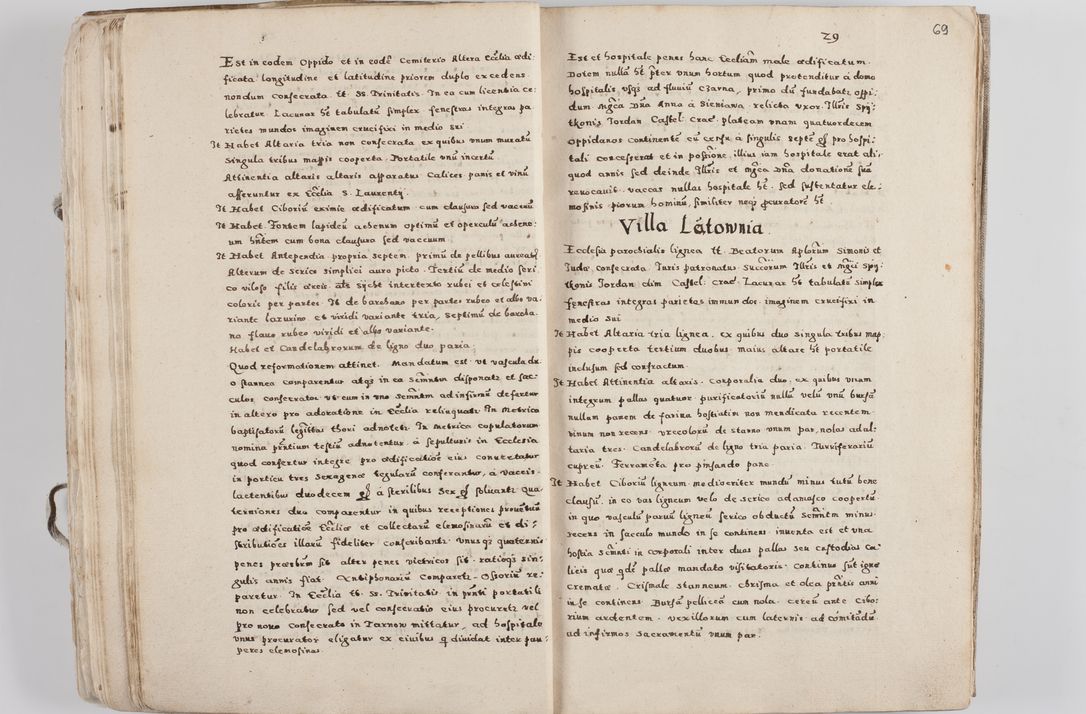 Est in eodem Oppido et in eodē Cemiterio Altera Eccłia ædi:
ficata longitudine et latitudine priorem duplo excedens
nondum consecrata tt. Ss Trinitatis. In ea cum licentia ce:
lebratur. Lacunar hēt tabulatū simplex fenestras integras pa:
rietes mundos imaginem crucifixi in medio sui
It Habet Altaria tria non consecrata ex quibus unum muratū
singula tribus mappis cooperta. Portatile unū incertū
Attinentia altaris altaris apparatus Calices panis et vinū
afferuntur ex Eccłia S. Laurentij
It Habet Ciborium eximie ædificatum cum clausura sed vacuū
It Habet Fontem lapideū ahenum optimū et operculū aheno:
um hñtem cum bona clausura sed vacuum
It Habet Antependia propria septem primū de pellibus aureatū
Alterum de serico simplici auro picto. Tertiū de medio seri
co viloso filis aureis intertexto rubei et celestini
coloris per partes. It de barchano per partes rubeo et albo va:
riante lazurino et viridi variante tria, septimū de barcha:
no flavo rubeo viridi et albo variante.
Habet et Candelabrorum de ligno duo paria
Quod reformationem attinet. Mandatum est ut vascula du
o stannea comparentur atq in ea Semñtum disponatr et sac:
culos consecrator ut cum in uno Semñtum ad infirmū defertur
in altero pro adoratione in Eccłia relinquatr In Metrica
baptisatorū legittimi thori adnotetr. In Metrica copulatorum
nomina pñtium testiū adnotentur. à sepulturis in Ecclesia
quod confertur integre pro ædificatioē eius convertatur
in porticu tres Sexagenæ tegularū conferantur, à vaccis
lactentibus duodecem gr à sterilibus Sex gr solvantr Qua:
terniones duo comparentur in quibus receptiones proventuū
pro ædificatioē Eccłiæ et collectarū elemosinarū et di:
stributioēs illarū fideliter conscribantr. unus q quaternio
penes præsbrm sit alter penes vietricos sit. ratioq sin:
gulis annis fiat. Antiphonariū Comparetr. Osoriū re:
paretur. In Eccłia tt. Ss. Trinitatis in pñti portatili
non celebratur sed vel consecratio eius procuretr vel
pro novo consecrato in Tarnow mittatur, ad hospitale
unus procurator eligatur ex civibus q dividat inter pau:
peres elemosinas.
29
69
Est et hospitale penes hanc Eccliam male ædificatum.
Dotem nullā hēt pter unum hortum quod protenditur à domo
hospitalis usq ad fluviū Czarna, primo dū fundabatr Oppi:
dum Mgca Dña Anna à Sieniawa relicta uxor Illris Spy:
tkonis Jordan Castel: Crac: plateam unam quatuordecem
oppidanos continentē cū censu à singulis septē gr pro hospi:
tali concesserat et in possione illius iam hospitale erat ali:
quod annis sed deinde Illris et Mgca Dña donationē suā
revocavit. vaccas nullas hospitale hēt. sed sustentatur ele:
mosinis piorum hominū, similiter neq pcuratorē hēt
Villa Lētownia.
Ecclesia parochialis lignea tt. Beatorum Aplorum Simonis et
Judæ consecrata. Juris patronatus Succorum Illris et Mgci Spy:
tkonis Jordan olim Castel: Crac: Lacunar hēt tabulatū simplex
fenestras integras parietes immundos imaginem crucifixi in
medio sui
It Habet Altaria tria lignea. ex quibus duo singula tribus map
pis cooperta tertium duobus maius altare hēt portatile
inclusum sed confractum
It Habet Attinentia altaris. Corporalia duo, ex quibus unum
integrum pallas quatuor purificatoriū nullū velū unū bursā
nullam panem de farina hostiatim non mendicata recentem
vinum non recens urceolorū de stanno unum par, nolas ad al:
taria tres. Candelabrorū de ligno tria paria. Turriferariū
cupreū. Ferramēta pro pinsando pane
It Habet Ciboriū ligneum mediocriter mundū minus tutū bene
clausū, in eo vas ligneum velo de serico adamasco coopertū
in quo vasculū parvū ligneū serico obductū Semñtum minus
recens in sacculo mundo in se continens inventa est et una
hostia Semñti in corporali inter duas pallas seu custodias ca:
licis quæ qdē pallæ mandato visitatoris continuo sūt igne
crematæ. Crismale stanneum chrisma et olea pñtis anni
in se continens. Bursā pelliceā cum nola. cereū ante Cibo:
rium ardentem. vexillorum cum laternis ad comitādū
ad infirmos Sacramentū unum par.